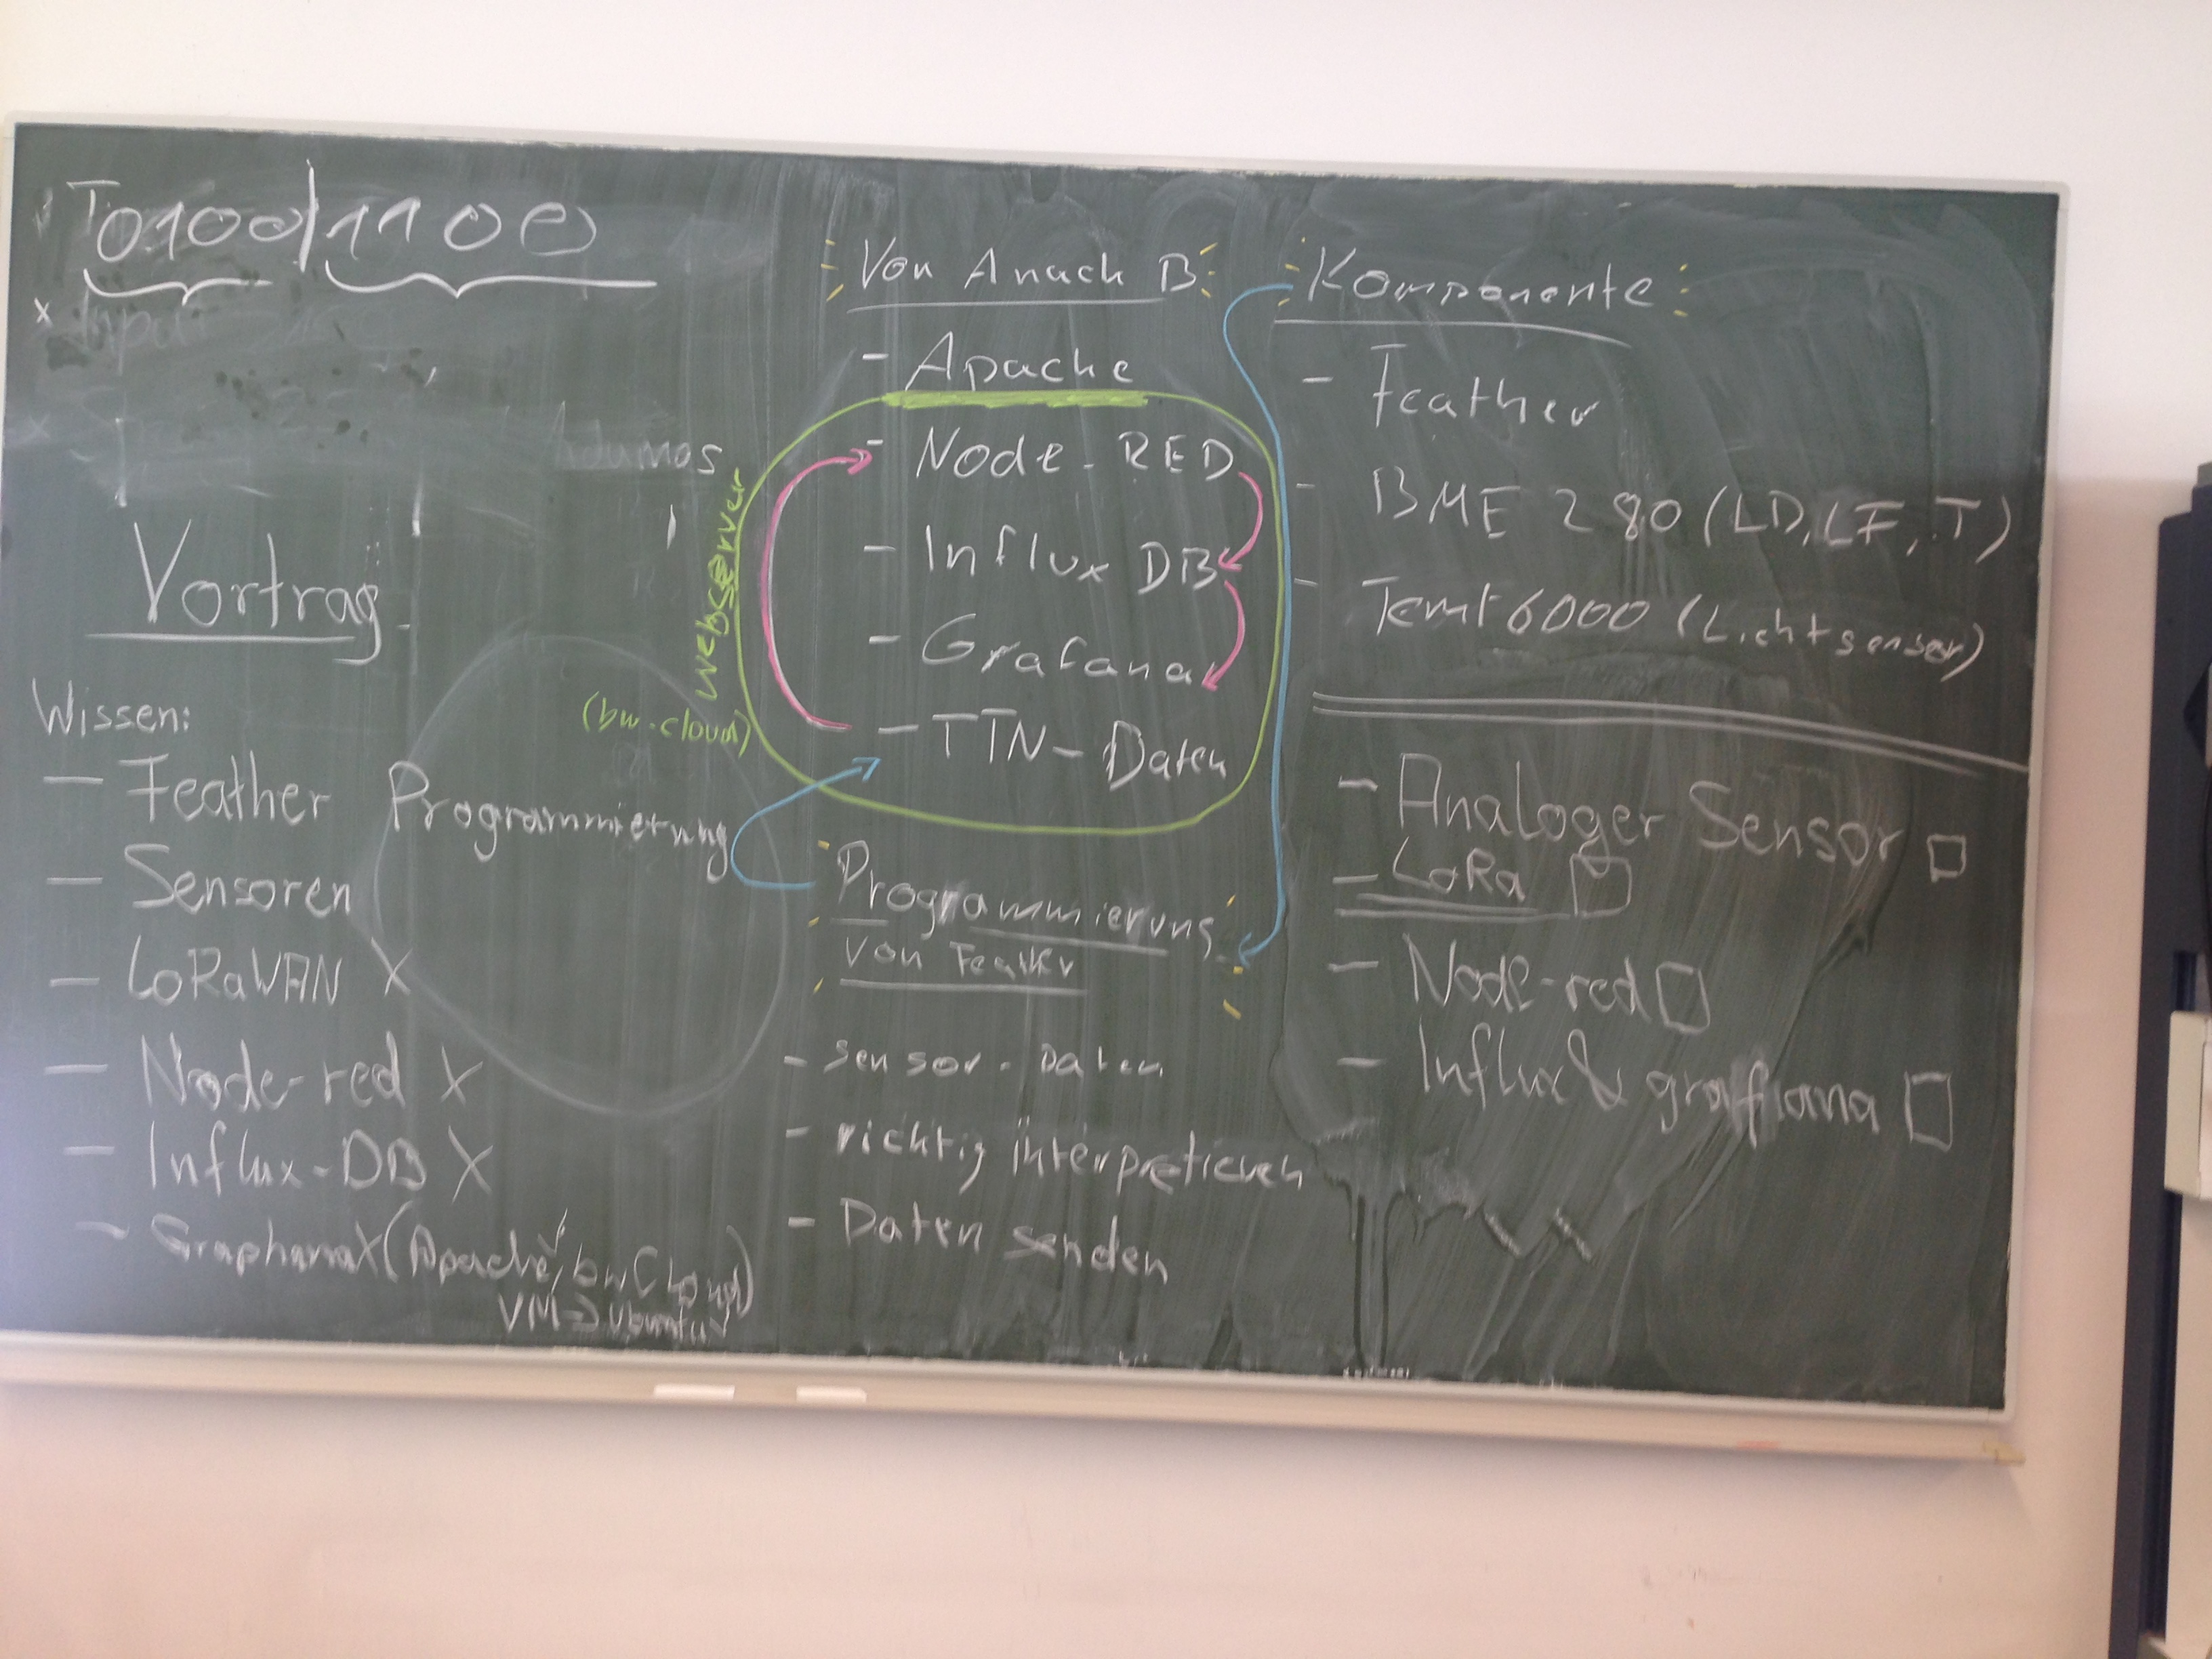 0100|1100
Vortrag
Wissen:
- Feather Programmierung
- Sensoren
- LoRaWAN X
- Node-red X
- Influx-DB X
- Graphana X (Apache, bwCloud)
VM → Ubuntu
Von A nach B
- Apache
- Node-RED
- Influx DB
- Grafana
- TTN-Daten
webserver
(bw.cloud)
Programmierung
von Feather
- Sensor-Daten
- richtig interpretieren
- Daten senden
Komponente
- Feather
- BME 280 (LD, LF, T)
- Temt6000 (Lichtsensor)
- Analoger Sensor □
- LoRa □
- Node-red □
- Influx & grafana □